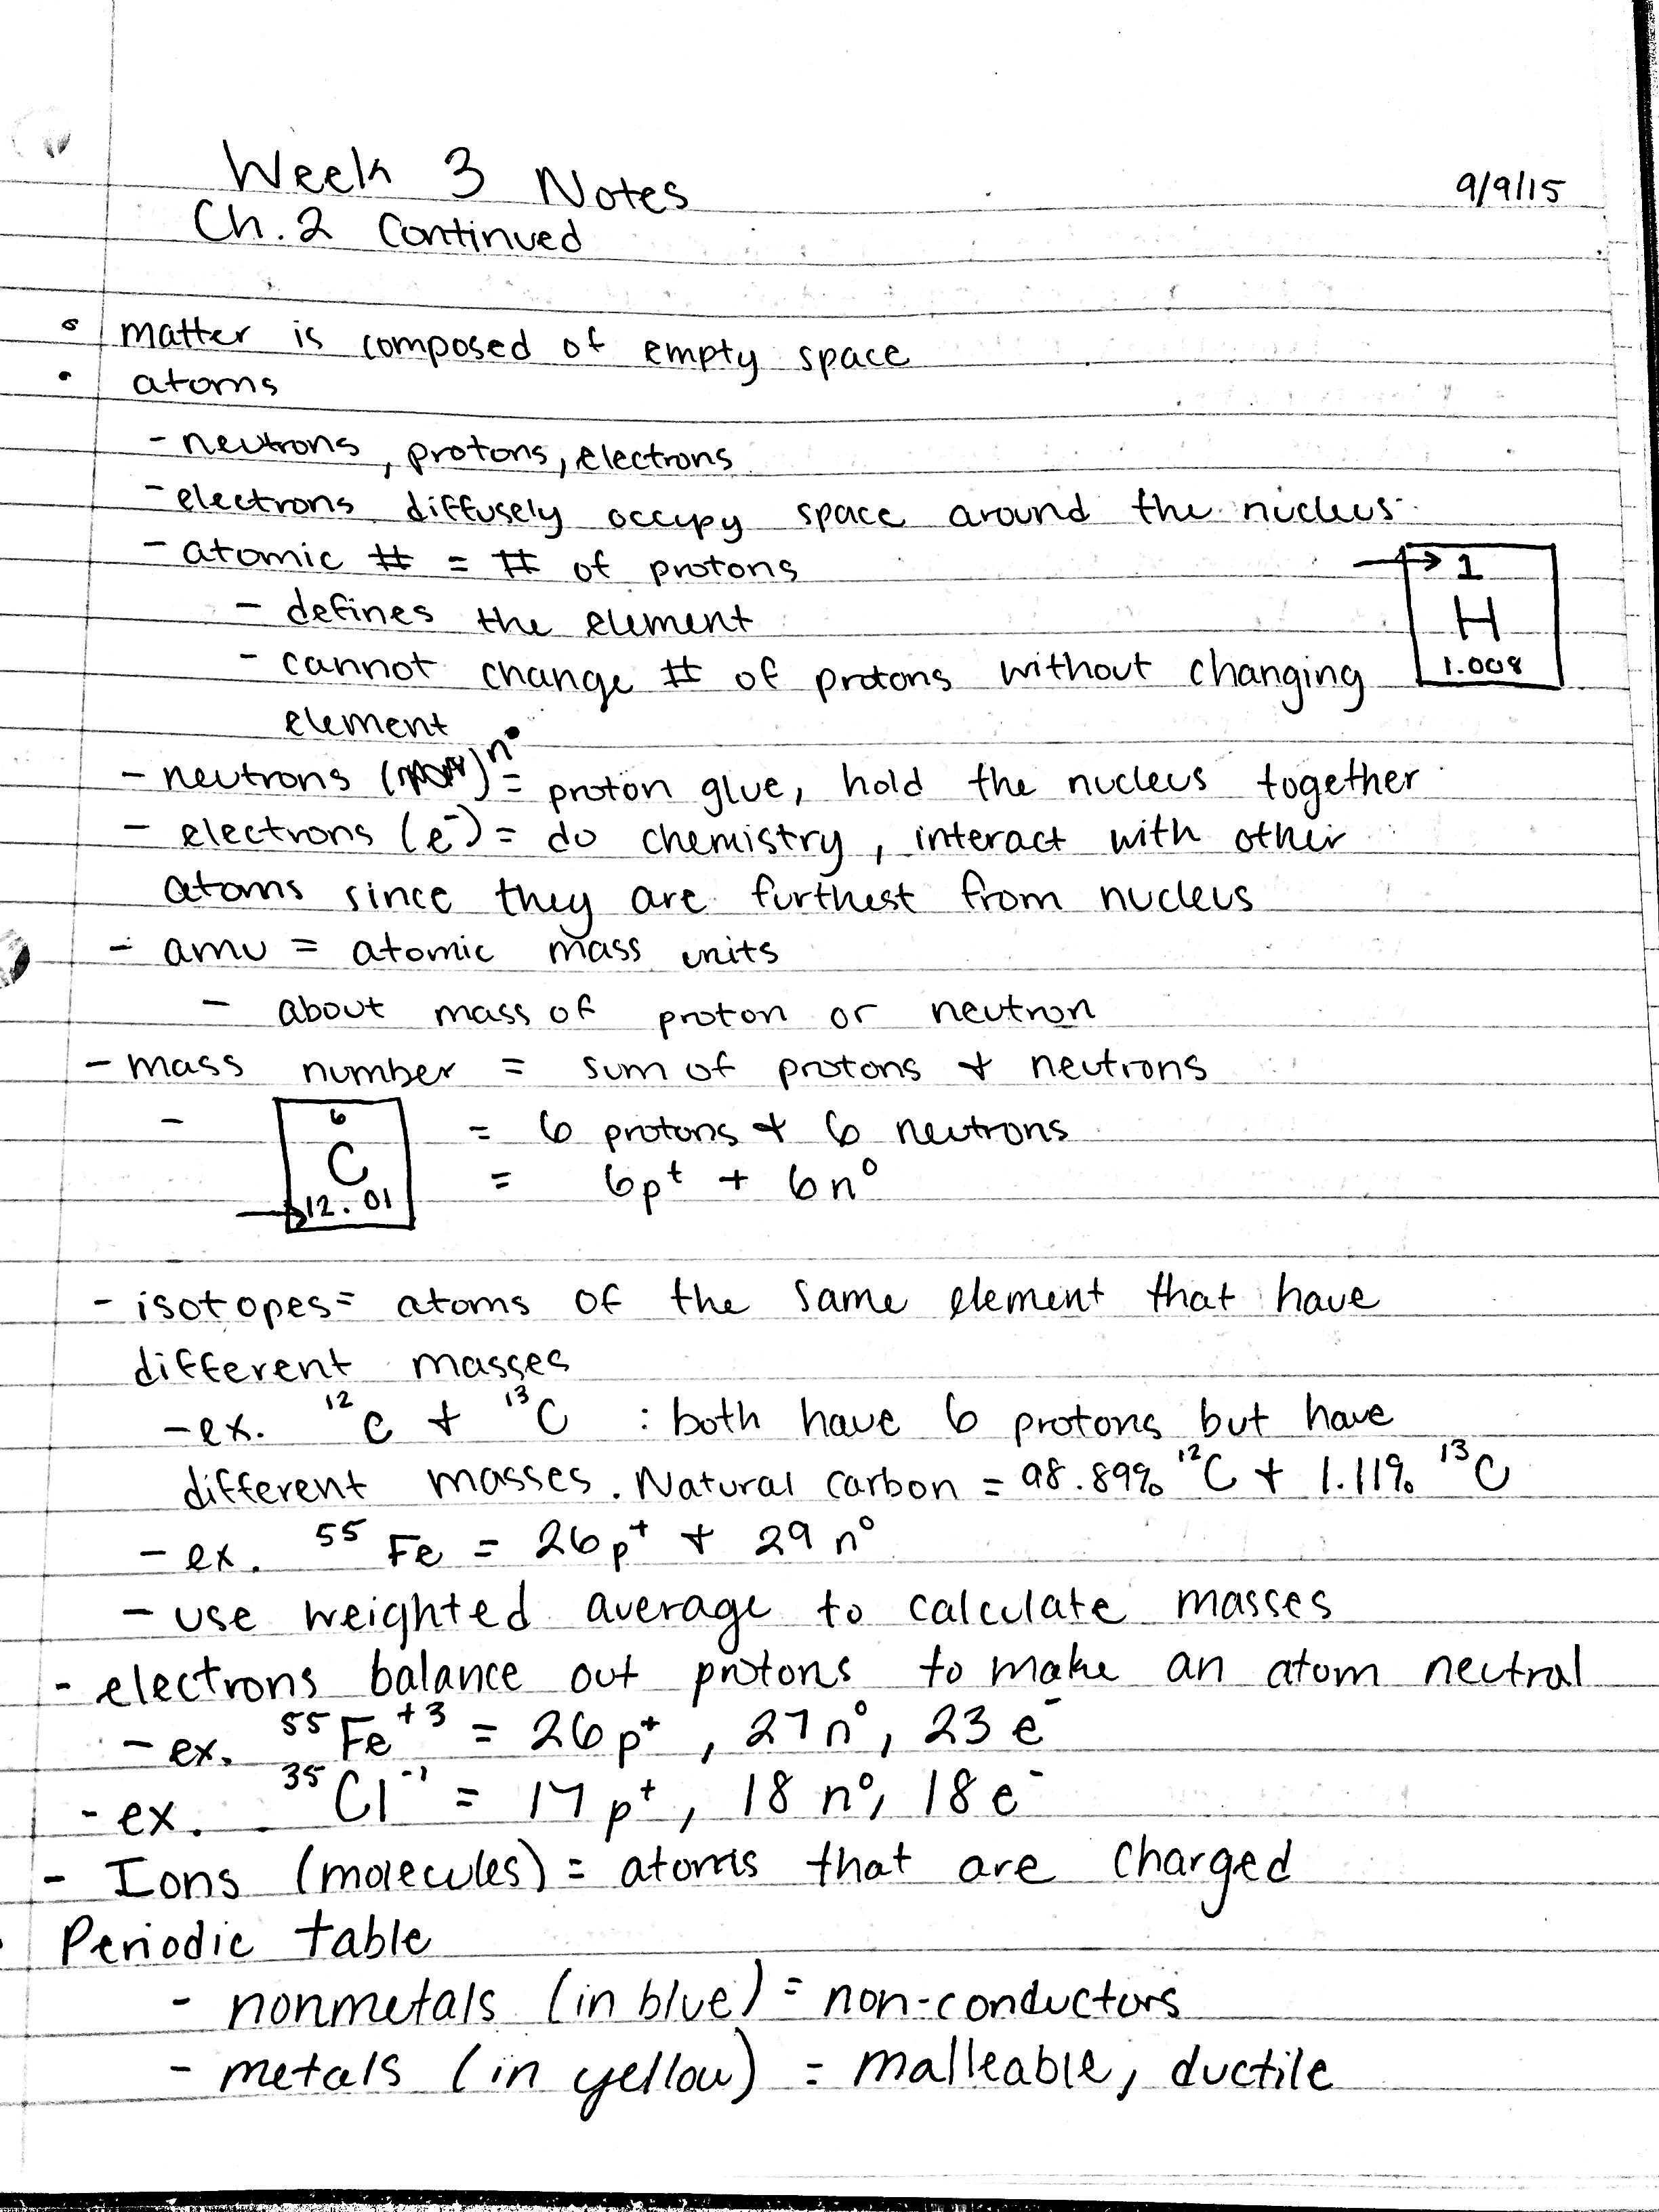 Week 3 Notes
9/9/15
Ch. 2 Continued
• matter is composed of empty space
• atoms
- neutrons, protons, electrons
- electrons diffusely occupy space around the nucleus
- atomic # = # of protons
→ 1
H
1.008
- defines the element
- cannot change # of protons without changing
element
- neutrons n° = proton glue, hold the nucleus together
- electrons (e⁻) = do chemistry, interact with other
atoms since they are furthest from nucleus
- amu = atomic mass units
- about mass of proton or neutron
- mass number = sum of protons & neutrons
-
6
C
→ 12.01
= 6 protons & 6 neutrons
= 6p⁺ + 6n⁰
- isotopes = atoms of the same element that have
different masses
- ex. ¹²C & ¹³C : both have 6 protons but have
different masses. Natural carbon = 98.89% ¹²C & 1.11% ¹³C
- ex. ⁵⁵Fe = 26p⁺ & 29n⁰
- use weighted average to calculate masses
- electrons balance out protons to make an atom neutral
- ex. ⁵⁵Fe⁺³ = 26p⁺, 27n⁰, 23e⁻
- ex. ³⁵Cl⁻¹ = 17p⁺, 18n⁰, 18e⁻
- Ions (molecules) = atoms that are charged
• Periodic table
- nonmetals (in blue) = non-conductors
- metals (in yellow) = malleable, ductile